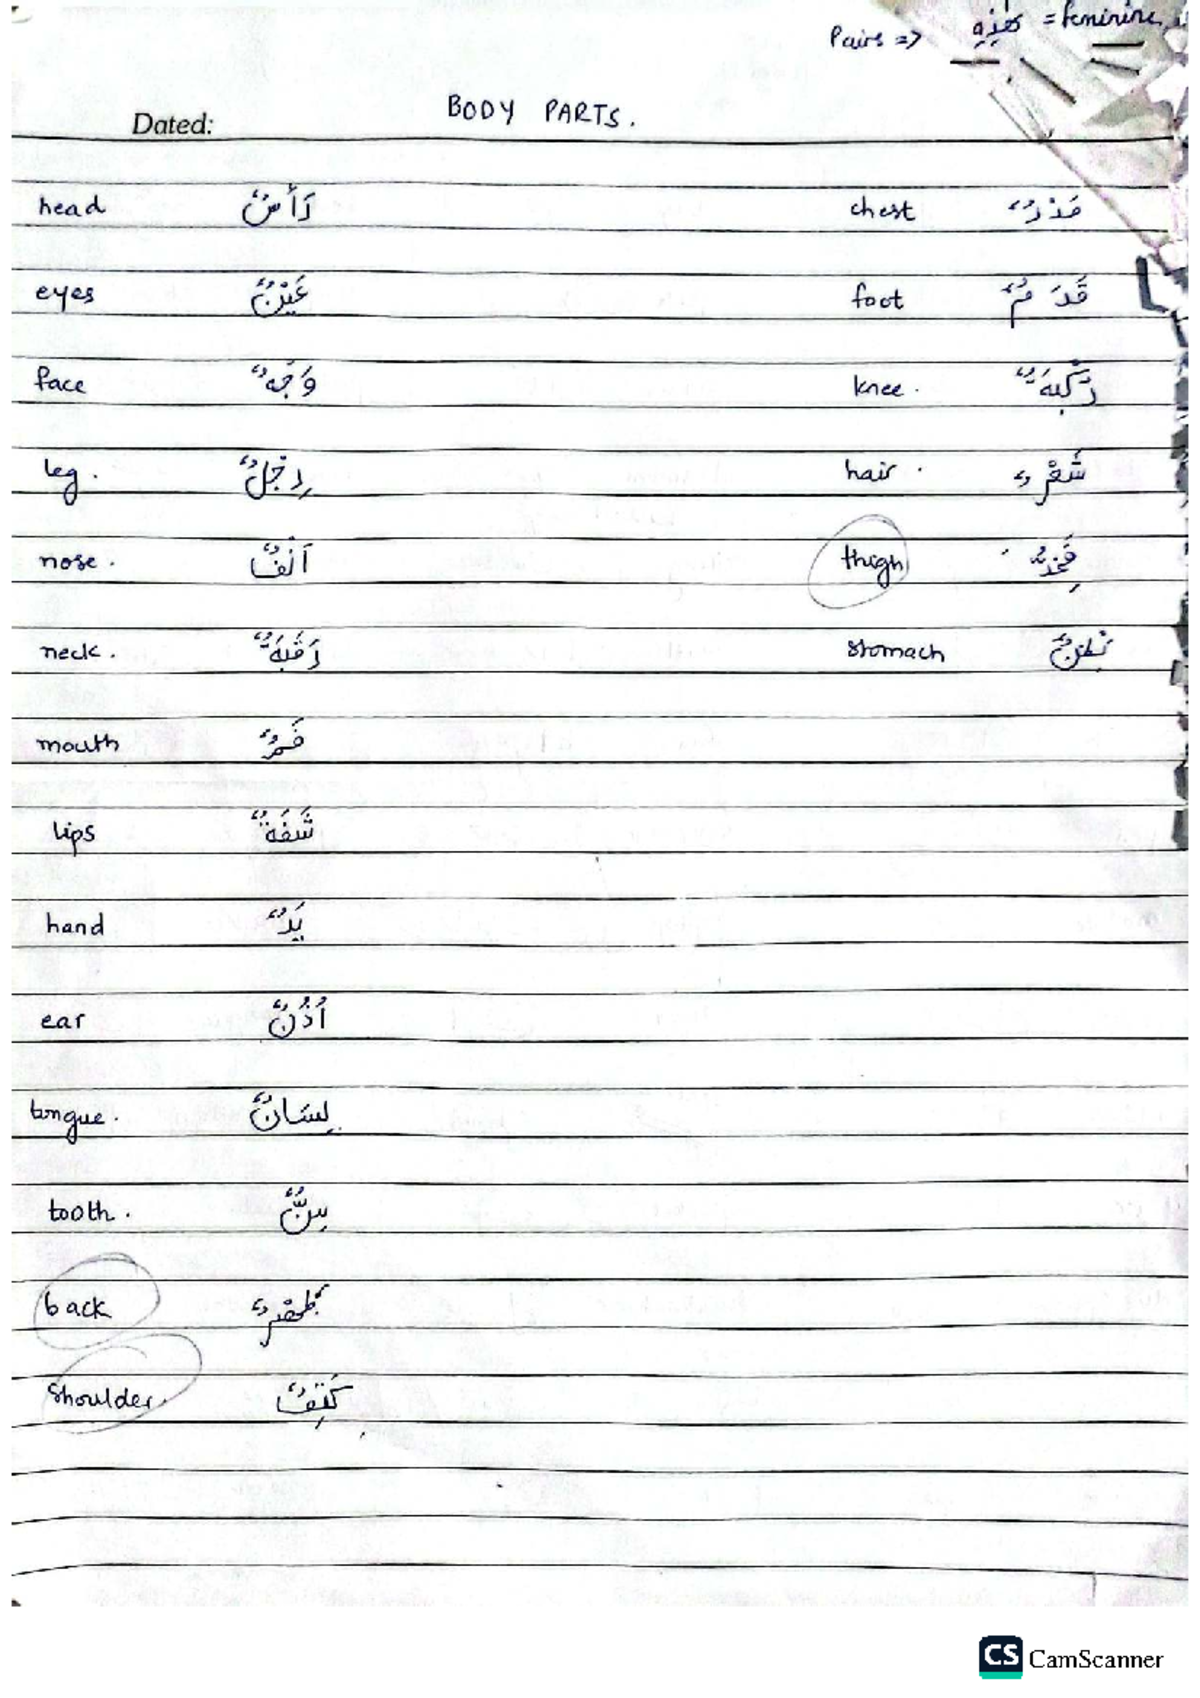 Pairs => هٰذِهِ = feminine
Dated: BODY PARTS.
head رَأْسٌ chest صَدْرٌ
eyes عَيْنٌ foot قَدَمٌ
face وَجْهٌ knee. رُكْبَةٌ
leg. رِجْلٌ hair. شَعْرٌ
nose. اَنْفٌ thigh فَخِذٌ
neck. رَقَبَةٌ stomach بَطْنٌ
mouth فَمٌ
lips شَفَةٌ
hand يَدٌ
ear اُذُنٌ
tongue. لِسَانٌ
tooth. سِنٌّ
back ظَهْرٌ
Shoulder. كَتِفٌ
CS CamScanner